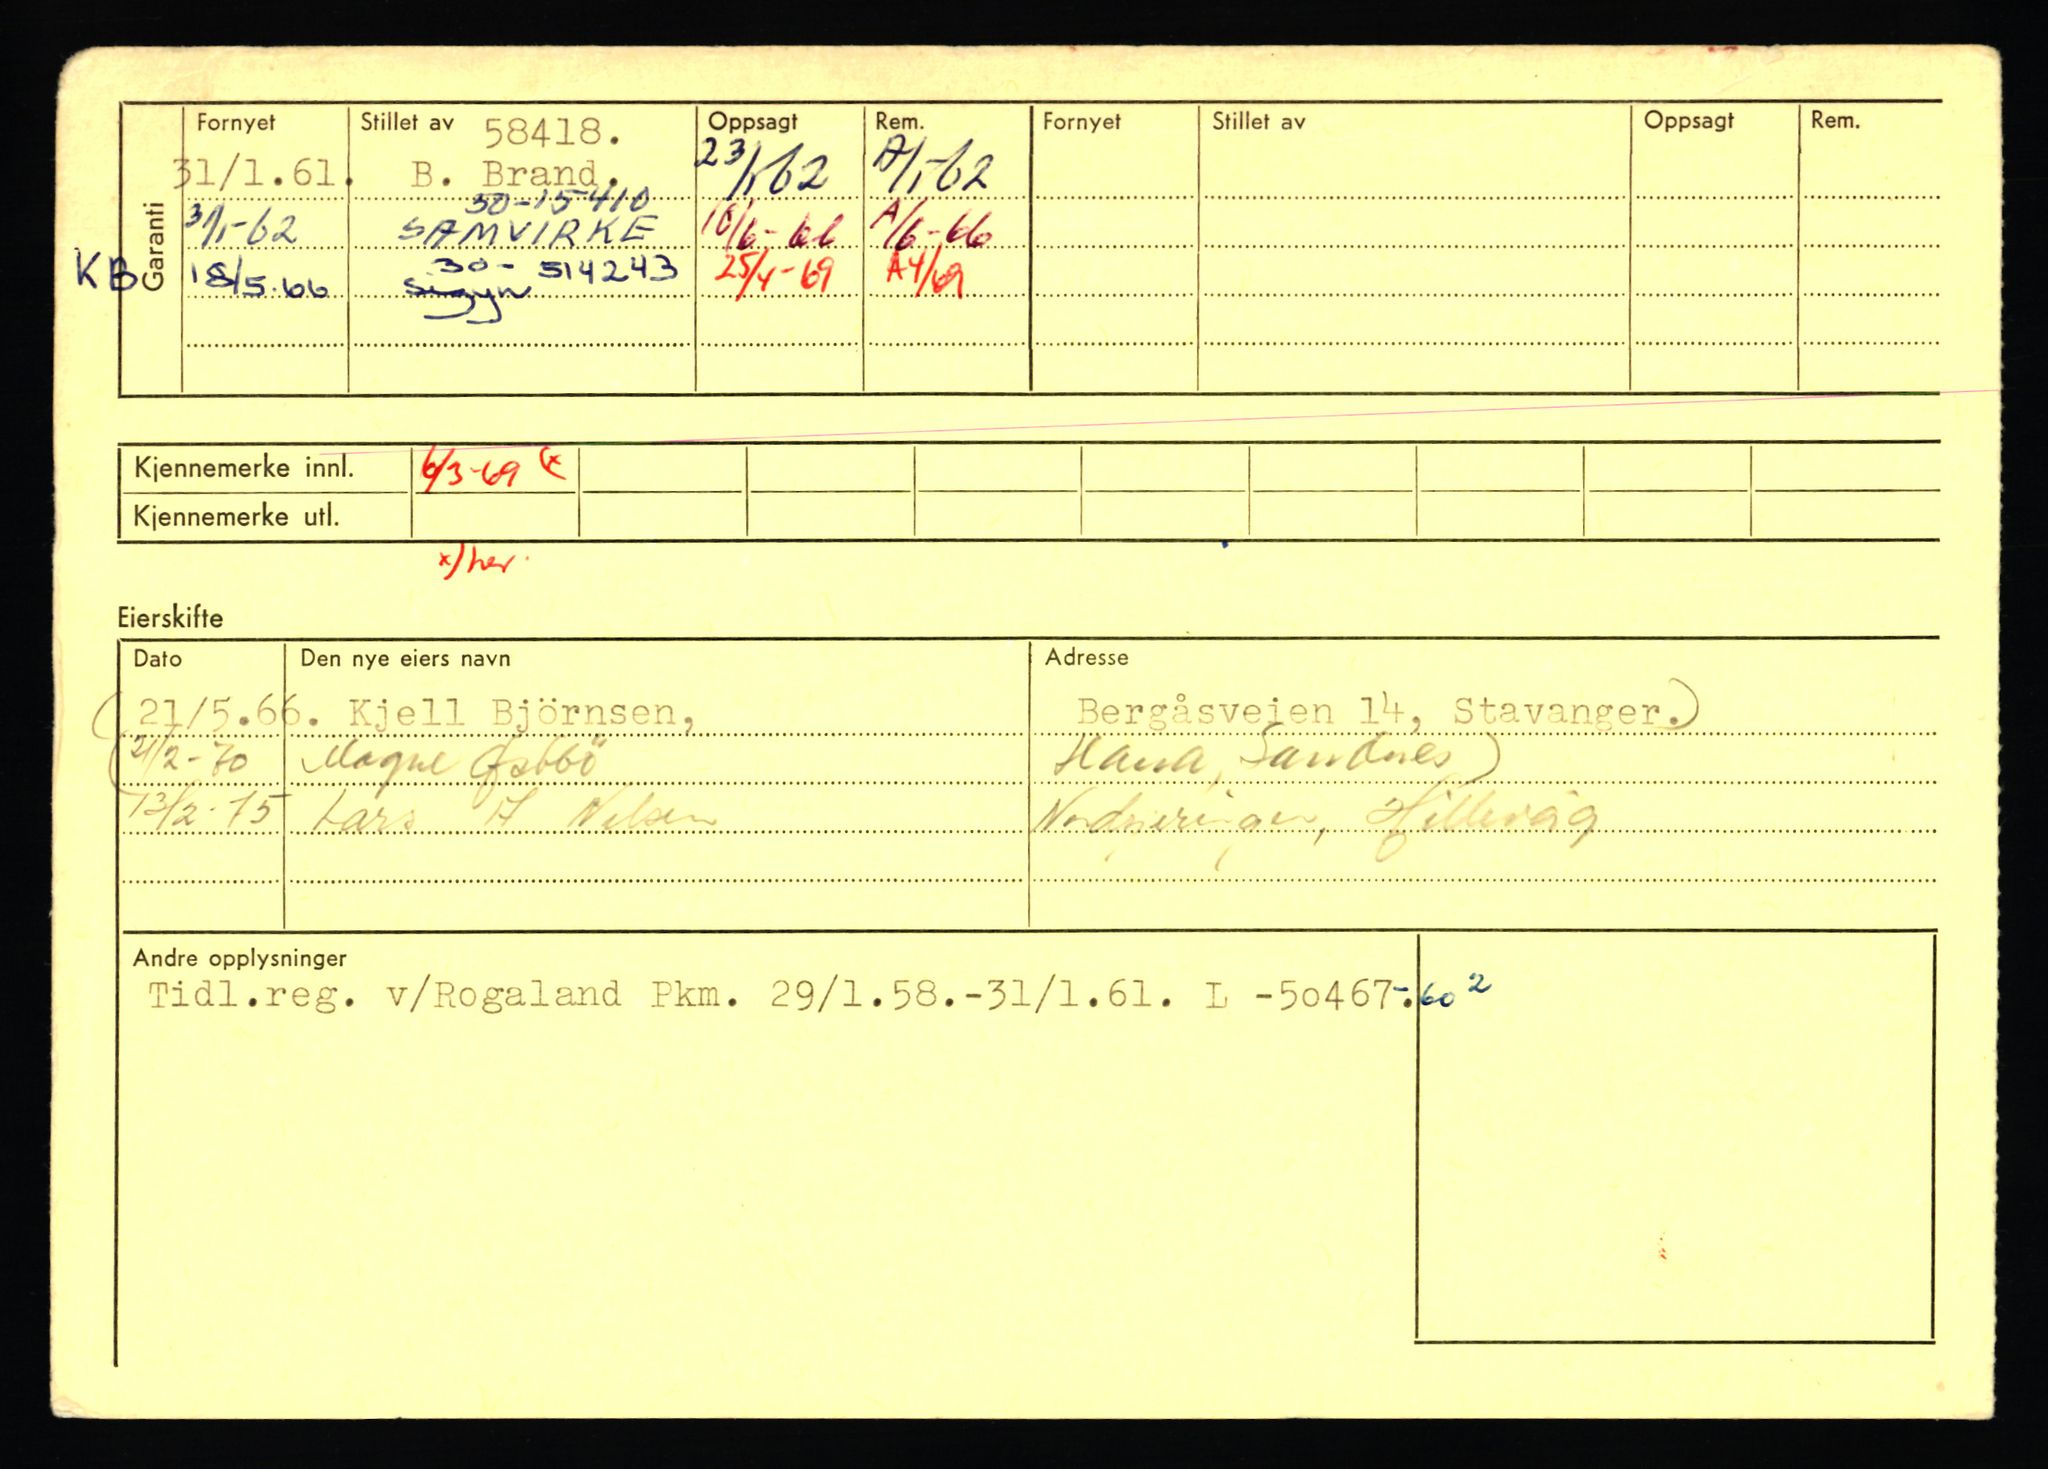 Garanti
Fornyet Stillet av Oppsagt Rem. Fornyet Stillet av Oppsagt Rem.
58418.
31/1.61. B. Brand. 23/1-62 A/1-62
30-15410
31/1-62 SAMVIRKE 10/6-66 A/6-66
KB 18/5.66 30-514243 25/4-69 A4/69
Sigyn
Kjennemerke innl. 6/3-69 (x
Kjennemerke utl.
x) her.
Eierskifte
Dato Den nye eiers navn Adresse
(21/5.66. Kjell Björnsen, Bergåsveien 14, Stavanger.)
(21/2-70 Magne Hana, Sandnes)
13/2-75 Lars A Nilsen Hillevåg
Andre opplysninger
Tidl.reg. v/Rogaland Pkm. 29/1.58.-31/1.61. L -50467.-60 2